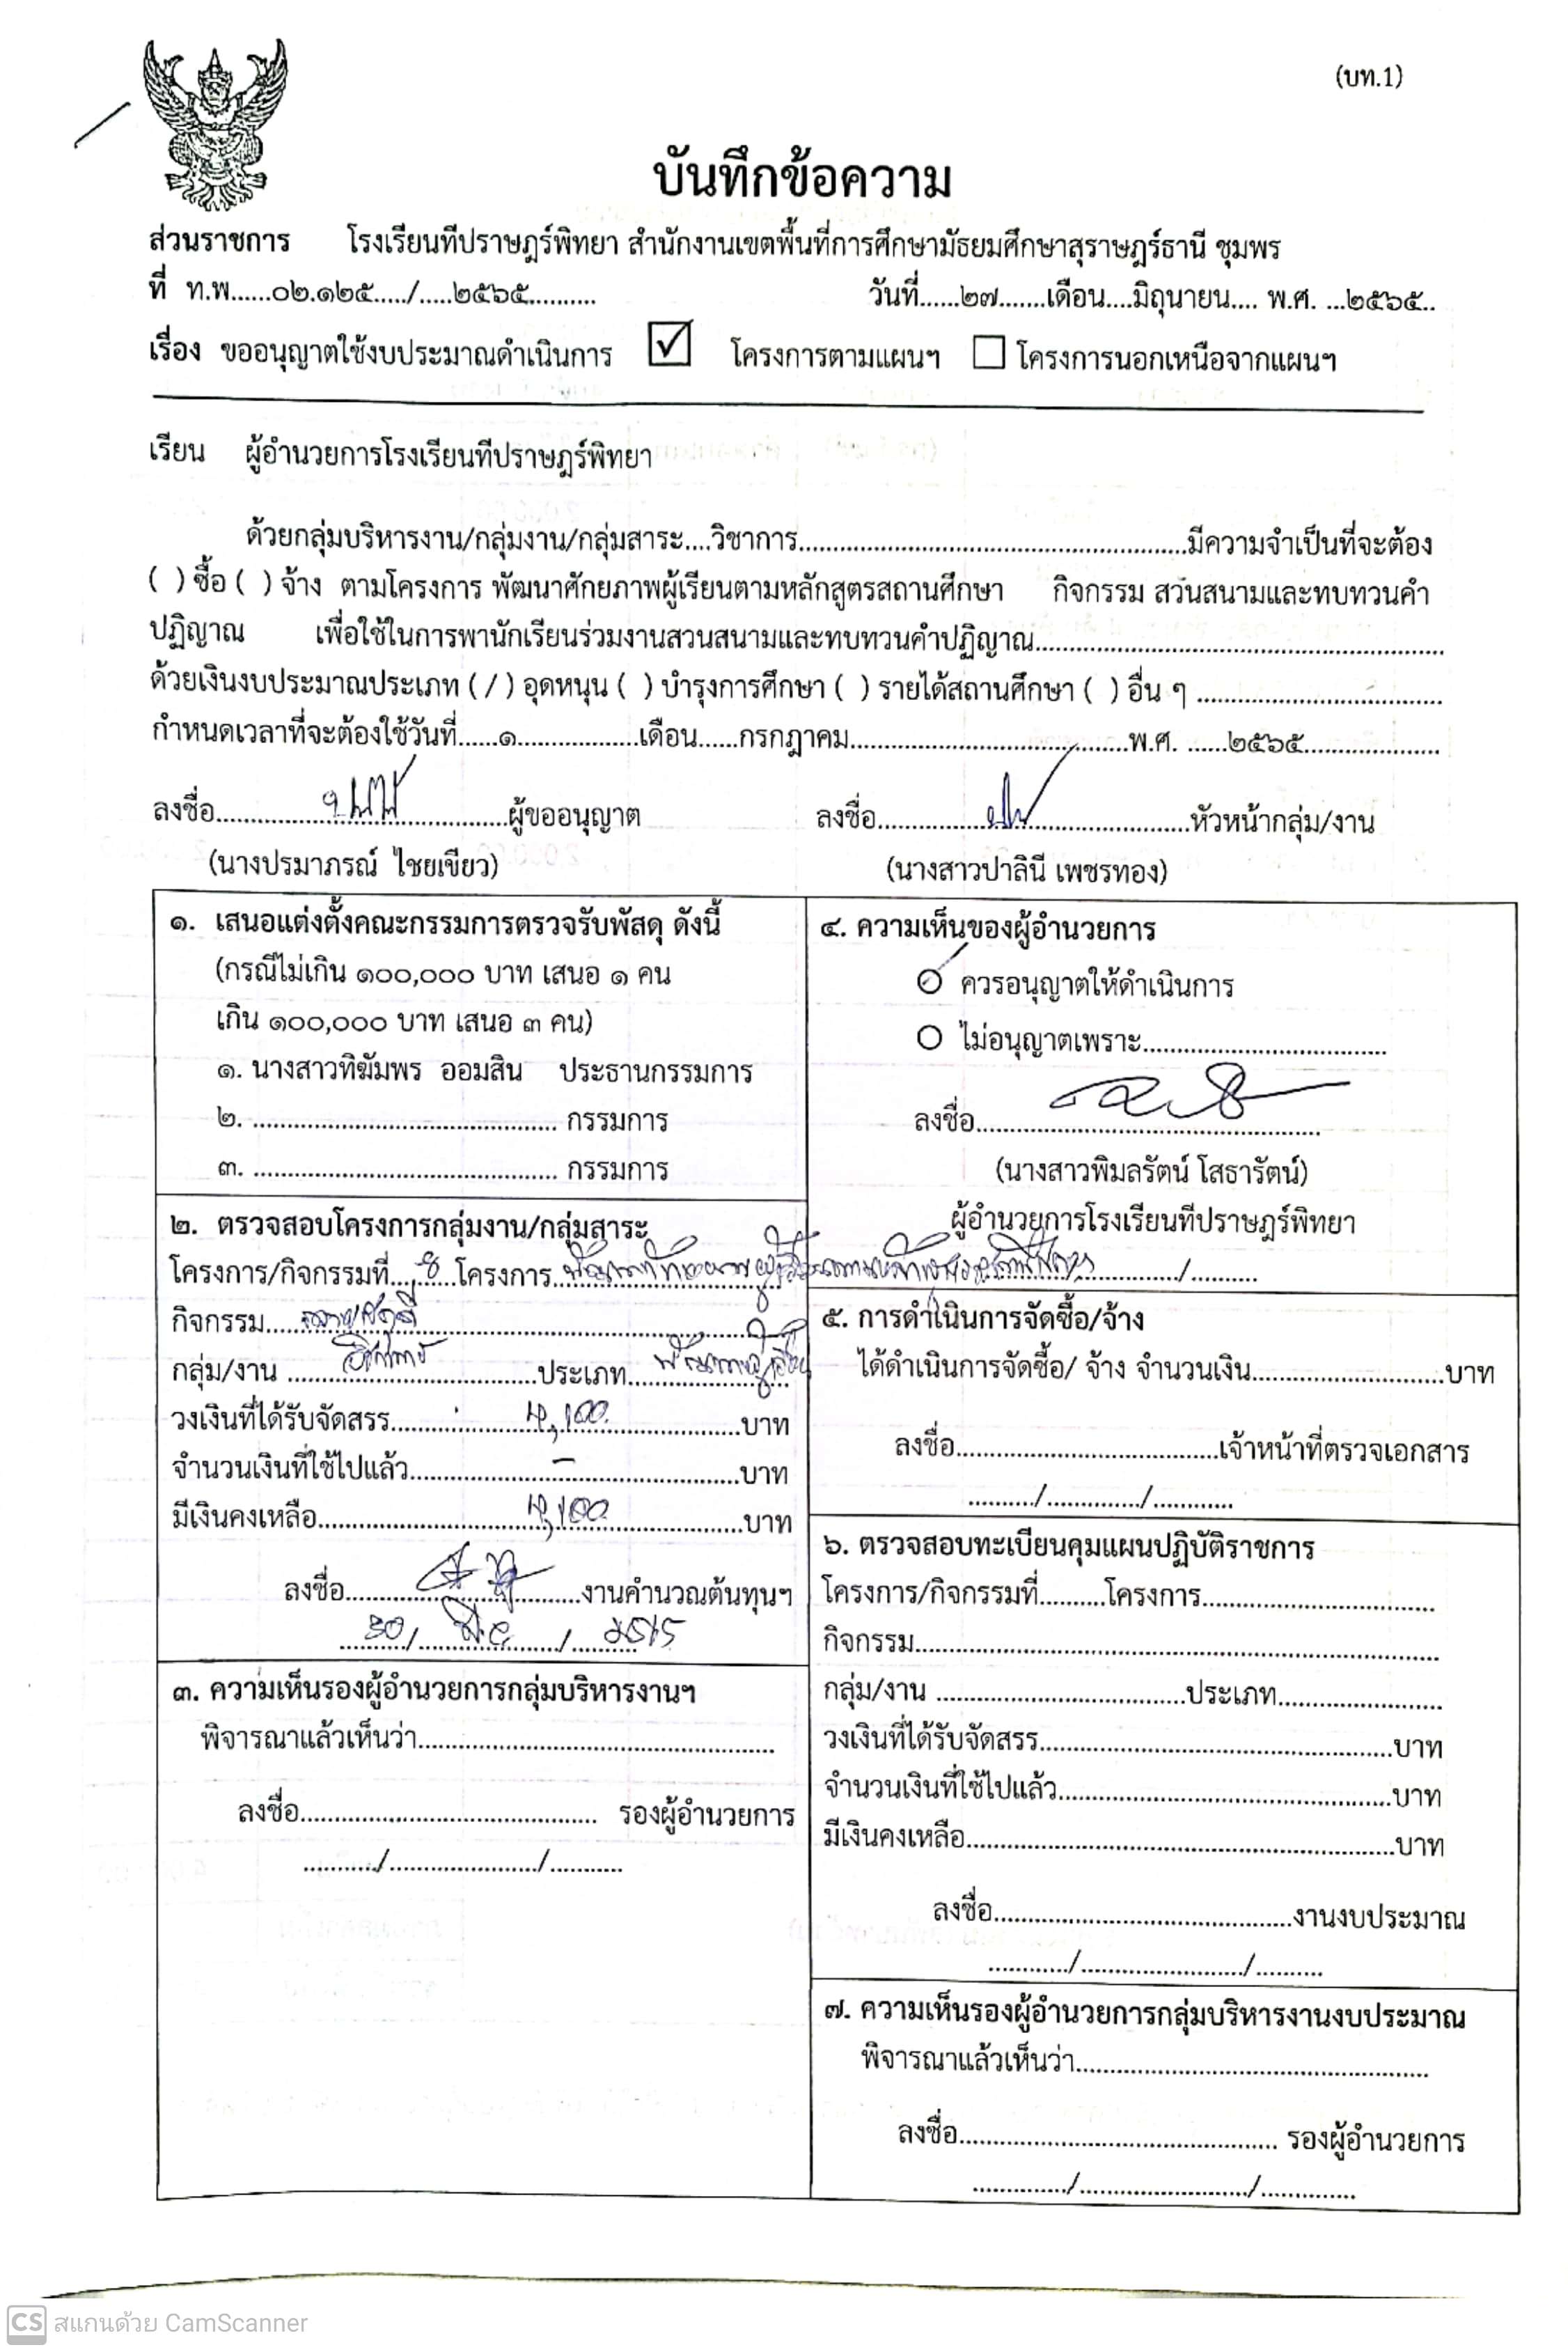 (บท.1)
บันทึกข้อความ
ส่วนราชการ โรงเรียนทีปราษฎร์พิทยา สำนักงานเขตพื้นที่การศึกษามัธยมศึกษาสุราษฎร์ธานี ชุมพร
ที่ ท.พ......๐๒.๑๒๕...../.....๒๕๖๕.......... วันที่......๒๗.......เดือน....มิถุนายน.... พ.ศ. ...๒๕๖๕..
เรื่อง ขออนุญาตใช้งบประมาณดำเนินการ ☑ โครงการตามแผนฯ ☐ โครงการนอกเหนือจากแผนฯ
เรียน ผู้อำนวยการโรงเรียนทีปราษฎร์พิทยา
ด้วยกลุ่มบริหารงาน/กลุ่มงาน/กลุ่มสาระ....วิชาการ..........................................มีความจำเป็นที่จะต้อง
( ) ซื้อ ( ) จ้าง ตามโครงการ พัฒนาศักยภาพผู้เรียนตามหลักสูตรสถานศึกษา กิจกรรม สวนสนามและทบทวนคำ
ปฏิญาณ เพื่อใช้ในการพานักเรียนร่วมงานสวนสนามและทบทวนคำปฏิญาณ..........................................
ด้วยเงินงบประมาณประเภท ( / ) อุดหนุน ( ) บำรุงการศึกษา ( ) รายได้สถานศึกษา ( ) อื่น ๆ ..............................
กำหนดเวลาที่จะต้องใช้วันที่......๑..................เดือน......กรกฎาคม..............................พ.ศ. ......๒๕๖๕....................
ลงชื่อ..............................ผู้ขออนุญาต ลงชื่อ..............................หัวหน้ากลุ่ม/งาน
(นางปรมาภรณ์ ไชยเขียว) (นางสาวปาลินี เพชรทอง)
๑. เสนอแต่งตั้งคณะกรรมการตรวจรับพัสดุ ดังนี้
(กรณีไม่เกิน ๑๐๐,๐๐๐ บาท เสนอ ๑ คน
เกิน ๑๐๐,๐๐๐ บาท เสนอ ๓ คน)
๑. นางสาวทิฆัมพร ออมสิน ประธานกรรมการ
๒. .............................. กรรมการ
๓. .............................. กรรมการ
๒. ตรวจสอบโครงการกลุ่มงาน/กลุ่มสาระ
โครงการ/กิจกรรมที่....8....โครงการ พัฒนาศักยภาพผู้เรียนตามหลักสูตรสถานศึกษา
กิจกรรม..............................
กลุ่ม/งาน ..........วิชาการ..........ประเภท....พัฒนาผู้เรียน
วงเงินที่ได้รับจัดสรร..........4,100..........บาท
จำนวนเงินที่ใช้ไปแล้ว..........-..........บาท
มีเงินคงเหลือ..........4,100..........บาท
ลงชื่อ..............................งานคำนวณต้นทุนฯ
30 / มิ.ย. / 2565
๓. ความเห็นรองผู้อำนวยการกลุ่มบริหารงานฯ
พิจารณาแล้วเห็นว่า..............................
ลงชื่อ.............................. รองผู้อำนวยการ
........../..................../..........
๔. ความเห็นของผู้อำนวยการ
ควรอนุญาตให้ดำเนินการ
ไม่อนุญาตเพราะ..............................
ลงชื่อ..............................
(นางสาวพิมลรัตน์ โสธารัตน์)
ผู้อำนวยการโรงเรียนทีปราษฎร์พิทยา
........../..........
๕. การดำเนินการจัดซื้อ/จ้าง
ได้ดำเนินการจัดซื้อ/ จ้าง จำนวนเงิน....................บาท
ลงชื่อ..............................เจ้าหน้าที่ตรวจเอกสาร
........../............../............
๖. ตรวจสอบทะเบียนคุมแผนปฏิบัติราชการ
โครงการ/กิจกรรมที่..........โครงการ..............................
กิจกรรม..............................
กลุ่ม/งาน ..............................ประเภท....................
วงเงินที่ได้รับจัดสรร..............................บาท
จำนวนเงินที่ใช้ไปแล้ว..............................บาท
มีเงินคงเหลือ..............................บาท
ลงชื่อ..............................งานงบประมาณ
.........../......................../..........
๗. ความเห็นรองผู้อำนวยการกลุ่มบริหารงานงบประมาณ
พิจารณาแล้วเห็นว่า..............................
ลงชื่อ.............................. รองผู้อำนวยการ
............../........................./..............
CS สแกนด้วย CamScanner